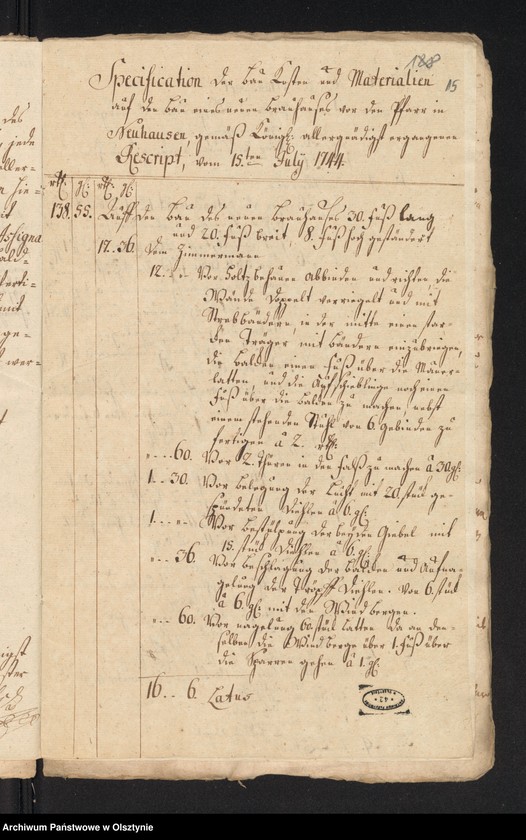 188
15
Specification der Bau Kosten und Materialien
auf den Bau eines neuen Brauhauses vor den Pfarr in
Neuhausen, gemäß Königl: allergnädigst ergangenen
Rescript, vom 15.ten July 1744.
rtl. gl. rtl. gl.
138. 55. Auff den Bau des neuen Brauhauses 30. Fuß lang
und 20. Fuß breit, 8. Fuß hoch geständert
17. 36. dem Zimmermann
12. Vor Holtz behauen Abbinden und richten, die
Wände doppelt verriegelt und mit
Strebbändern in der mitte einen star-
ken Träger mit Bändern einzubringen,
die Balcken einen Fuß über die Mauer-
latten, und die Aufschieblinge noch einen
Fuß über die Balcken zu machen, nebst
einem stehenden Stuhl von 6. Gebinden zu
fertigen à 2. rtl.
60. Vor 2. Thüren in den Falß zu machen à 30 gl.
1. 30. Vor Belegung der Lucht mit 20. stück ge-
Diehlen à 6. gl.
1. Vor Bestülpung der beyden Giebel mit
15. stück Diehlen à 6. gl.
36. Vor Beschlagung der Balcken und Aufna-
gelung der Diehlen. Von 6. stück
à 6. gl. mit den Windbergen.
60. Vor nagelung 60. stück Latten da an den-
selben die Windberge über 1. Fuß über
die Sparren gehen à 1. gl.
16. 6. Latus
des
jede
Assigna
mit
ge-
wer-
Archiwum Państwowe w Olsztynie